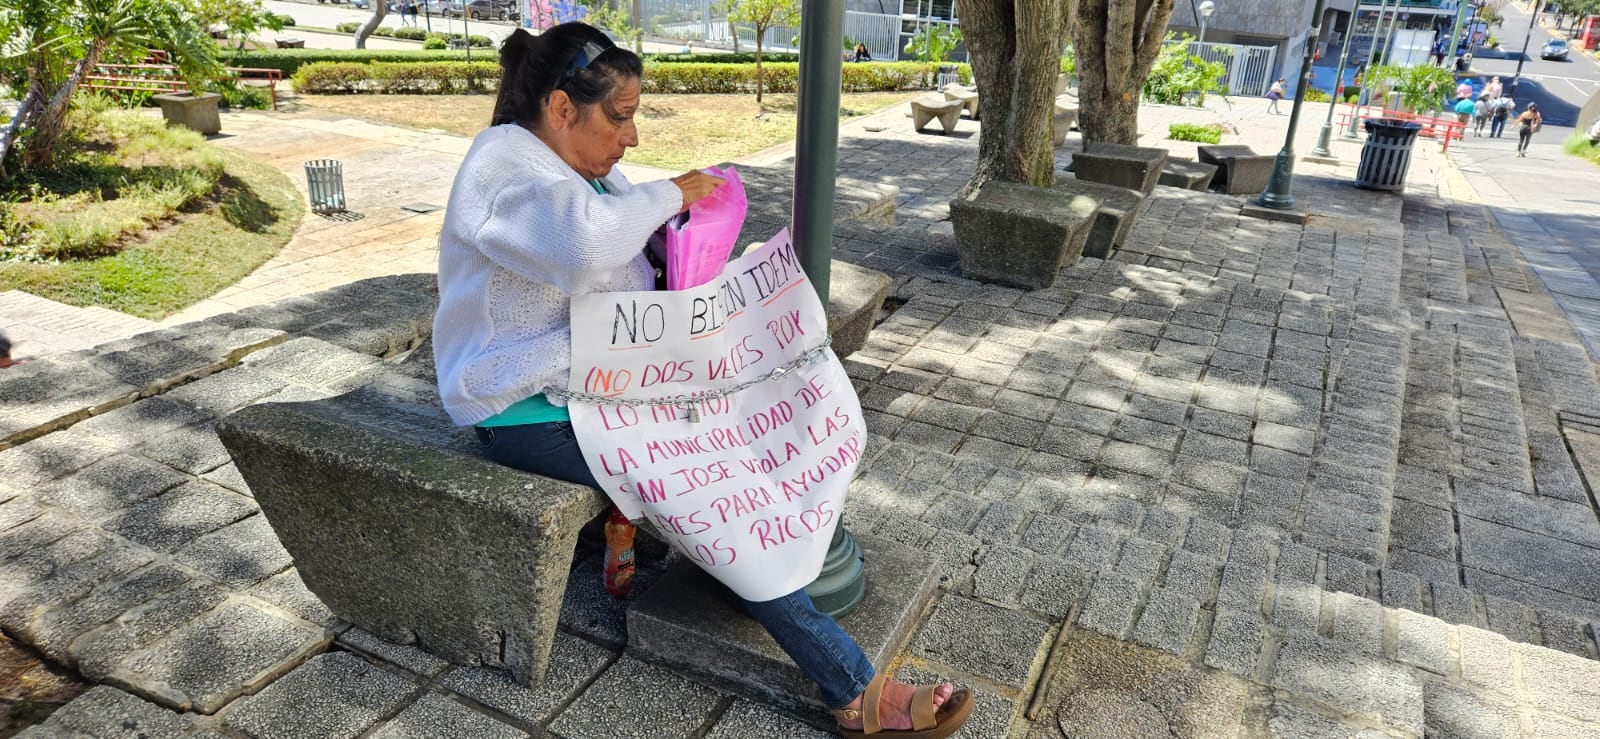 NO BIS IN IDEM
(NO DOS VECES POR
LO MISMO)
LA MUNICIPALIDAD DE
SAN JOSE VIOLA LAS
LEYES PARA "AYUDAR"
LOS RICOS